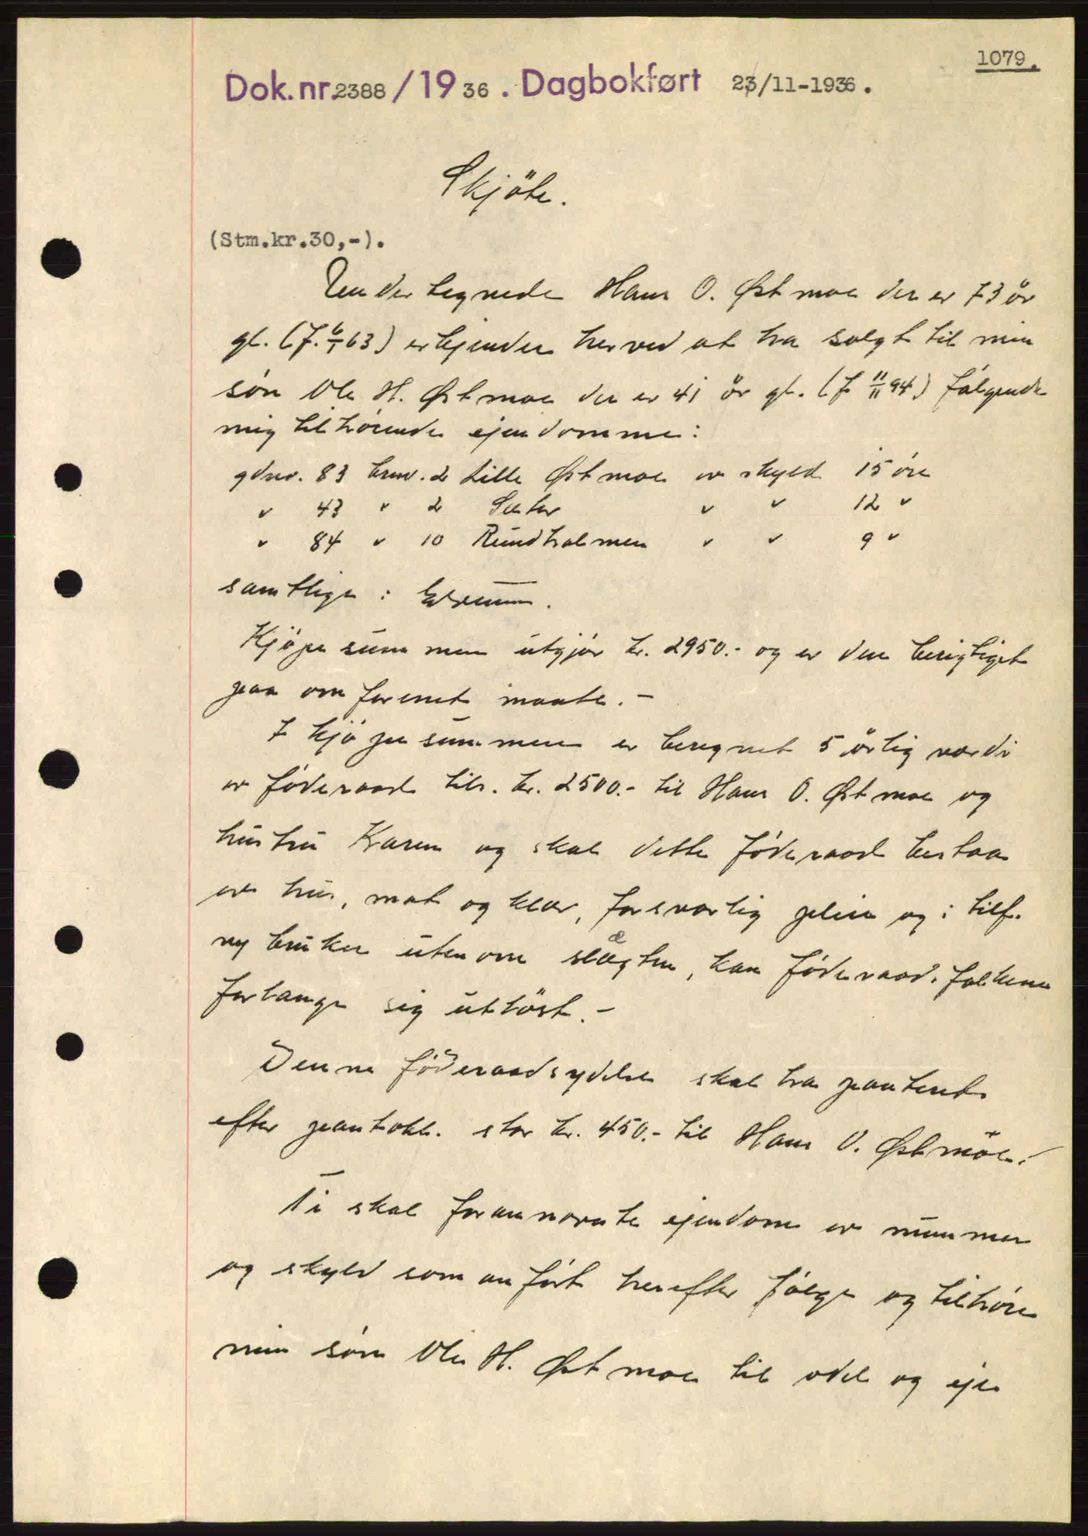 1079.
Dok. nr. 2388 / 19 36 . Dagbokført 23/11-1936.
Skjöte.
(Stm.kr.30,-).
Undertegnede Hans O. Østmoe der er 73 år
gl. (f. 6/1 63) erkjender herved at ha solgt til min
sön Ole H. Østmoe der er 41 år gl. (f 11/11 94) følgende
mig tilhörende ejendomme:
gdnr. 83 brnr. 2 Lille Østmoe av skyld 15 öre
" 43 " 2 Sæter " " 12 "
" 84 " 10 Rundholmen " " 9 "
samtlige i Elverum.
Kjöpesummen utgjör kr. 2950.- og er den berigtiget
paa omforenet maate. -
I kjöpesummen er beregnet 5 årlig værdi
av föderaad tils. kr. 2500.- til Hans O. Østmoe og
hustru Karen og skal dette föderaad bestaa
av hus, mat og klær, forsvarlig pleie og i tilf.
ny bruker utenom slægten, kan föderaad.folkene
forlange sig utlöst. -
Denne föderaadsydelse skal ha panteret
efter pantobl. stor kr. 450.- til Hans O. Østmoe. -
Ti skal forannævnte ejendom av nummer
og skyld som anfört herefter følge og tilhöre
min sön Ole H. Østmoe til odel og eje